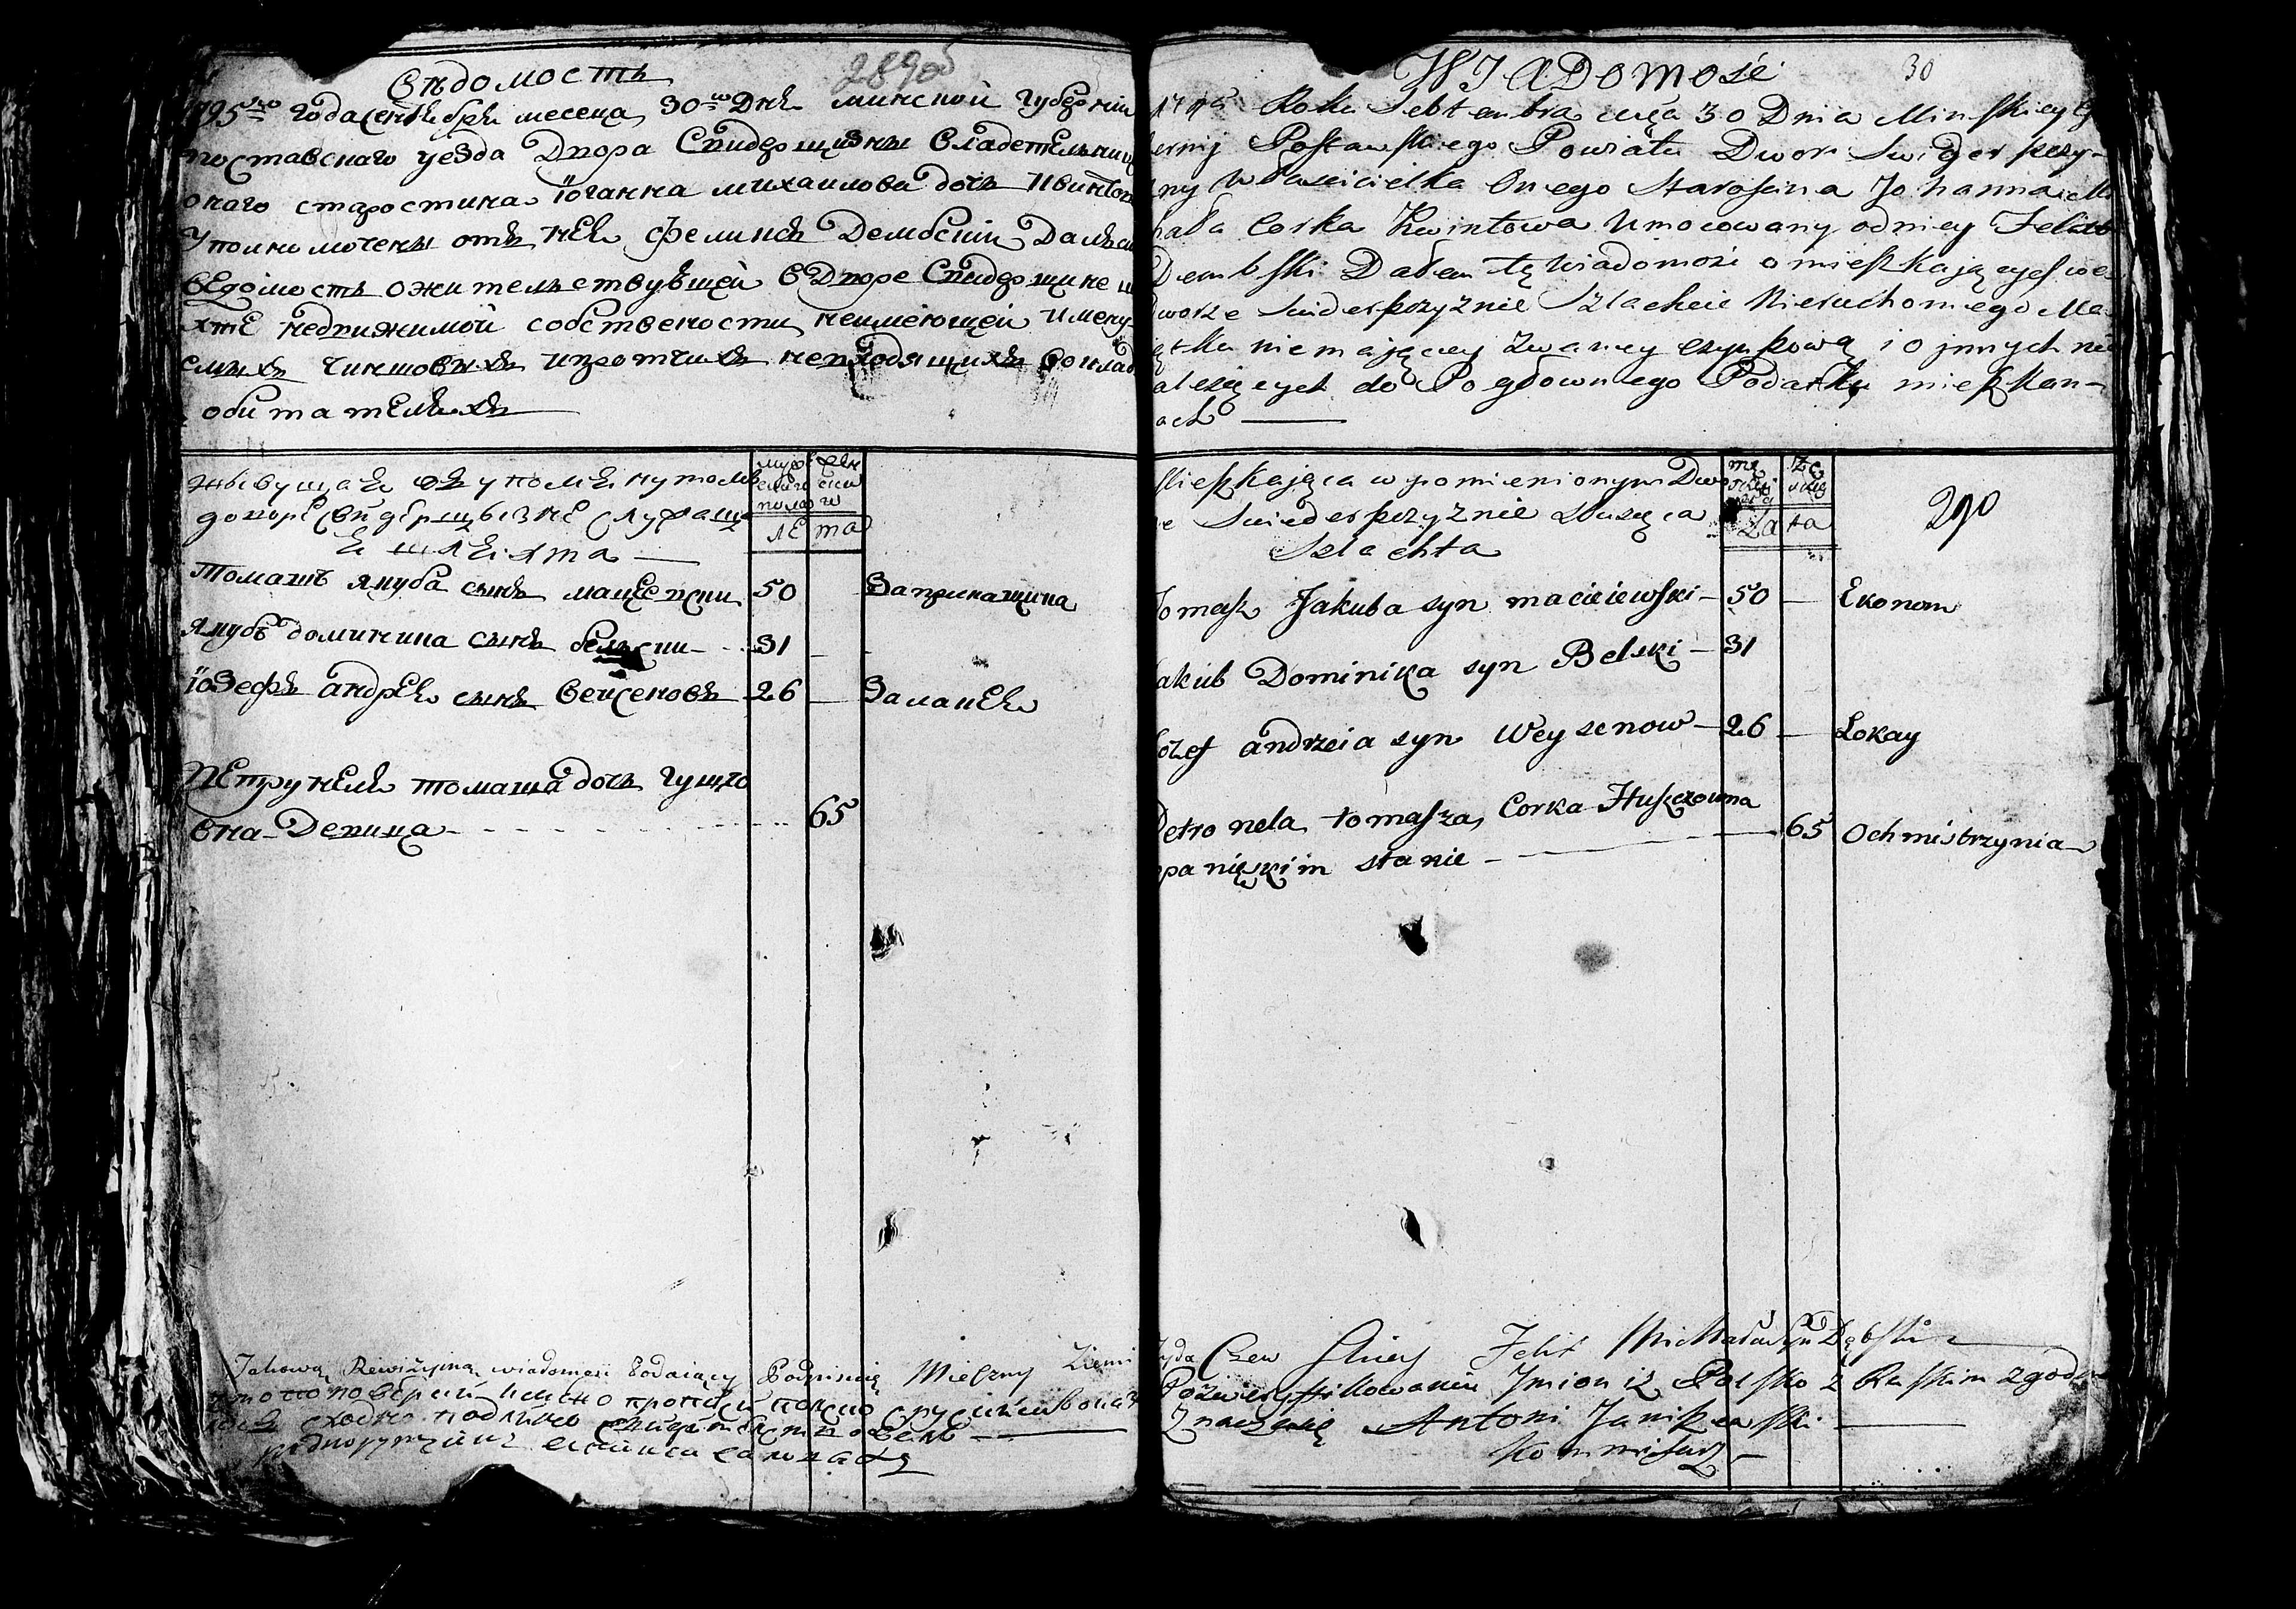 Вѣдомость
289об
1795го года сентебря месеца 30го Дня минской губерніи
поставскаго уезда Двора Свидерщизны владетельница
онаго старостина іоганна михаилова дочь Квинтова
Уполномочены отъ нея феликсъ Дембскій Далъ сию
ведомость о жительствующей в Дворе Свидерщизне шля
хте недвижимой собствености неимеющей имену-
емыхъ чиншовыхъ и протчихъ невходящихъ в оклад
обитателяхъ
живущая въ упомянутомъ
дворе Свидерщызне Служаща
я шляхта
мужеска женска
полов
ле та
Томашъ якуба сынъ мацеевски 50 Заприкащика
якубъ доминика сынъ бельски 31
іозефъ андрея сынъ вейсеновъ 26 За лакея
Петрунеля томаша дочь гущо
вна Девица 65
Takową Rewizyiną wiadomość Podaiący Podpisuię Mieczny Ziemi
30
WIADOMOść
1795 Roku Sebtembra mca 30 Dnia Minskiey G
ernij Postawskiego Powiatu Dwor Swiderszczy-
zny Włascicielka Onego Starościna Johanna Mi
hała Corka Kwintowa Umocowany od niey Felix
Dembski Dałem tę Wiadomość o mieszkającyes we
Dworze Swiderszczyznie Szlachcie Nieruchomego Ma
ątku nie mającey zwaney czynszową i o jnnych nie
ależących do Pogłownego Podatku mieszkan-
ach
290
Mieszkająca w pomienionym Dwo
e Swiederszczyznie Służąca
Szlachta
La ta
Tomasz Jakuba syn macieiewski 50 Ekonom
Jakub Dominika syn Belski 31
Jozef andrzeia syn Weysenow 26 Lokay
Petronela tomasza Corka Huszczowna
w panięskim stanie 65 Ochmistrzynia
Felix Michała Syn Dębski
Po zweryfikowaniu Jmion iż Polsko z Ruskim zgodn
Znaczenie Antoni Janiszewski
Kommissarz